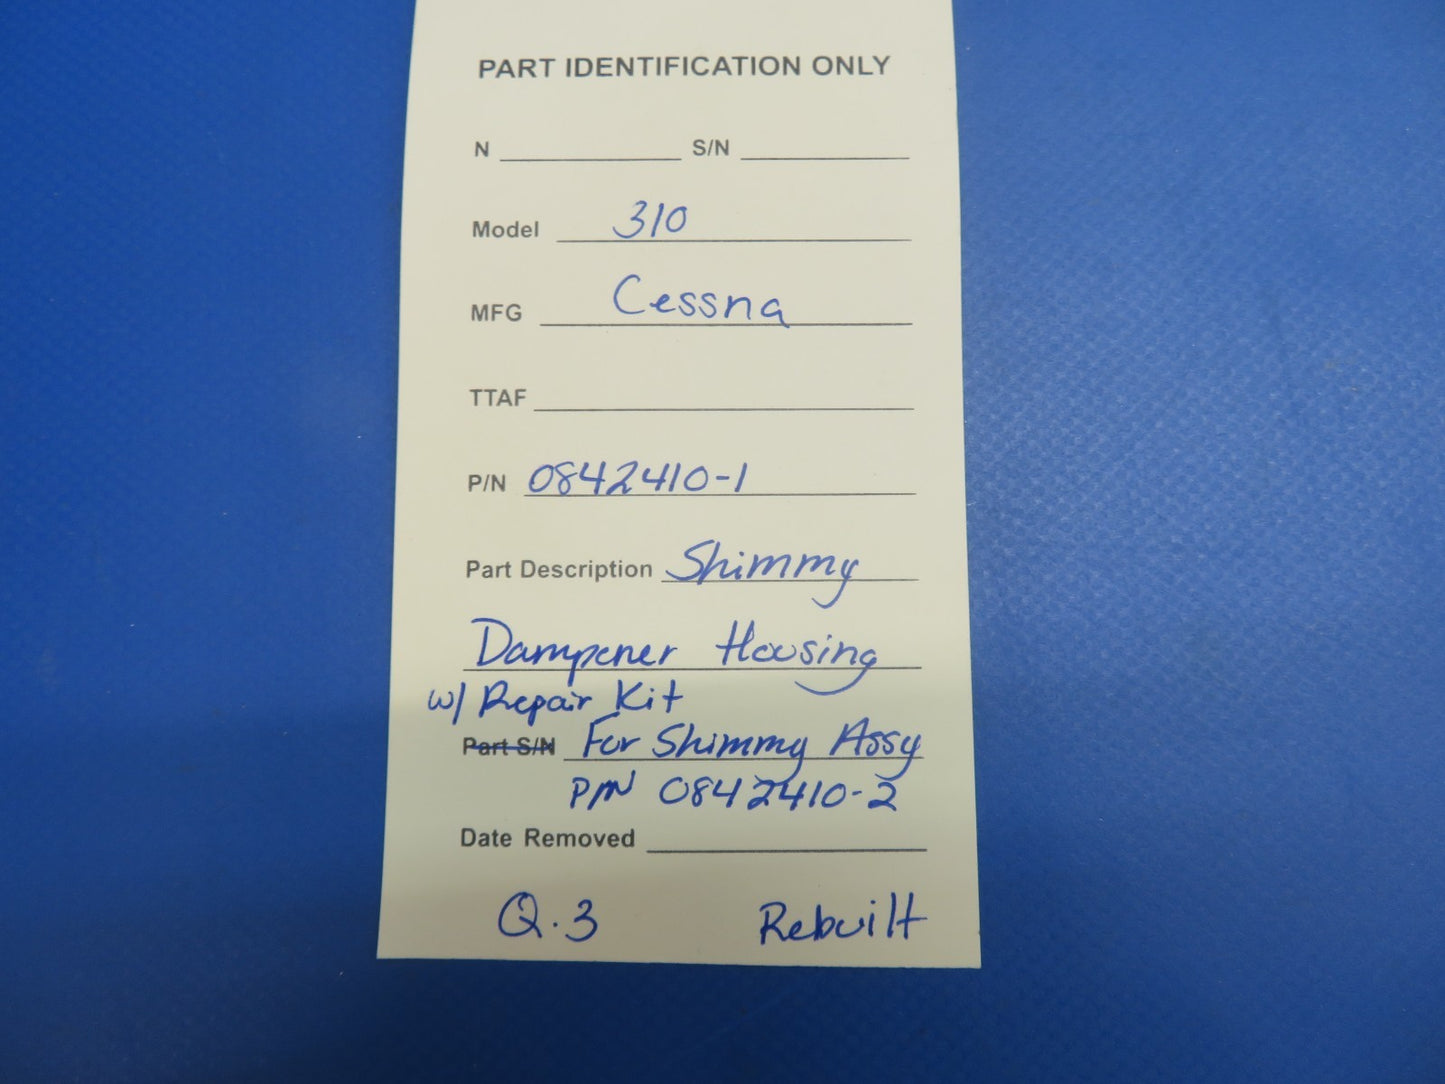 PART IDENTIFICATION ONLY
N S/N
Model 310
MFG Cessna
TTAF
P/N 0842410-1
Part Description Shimmy
Dampener Housing
w/ Repair Kit
Part S/N For Shimmy Assy
P/N 0842410-2
Date Removed
Q.3 Rebuilt